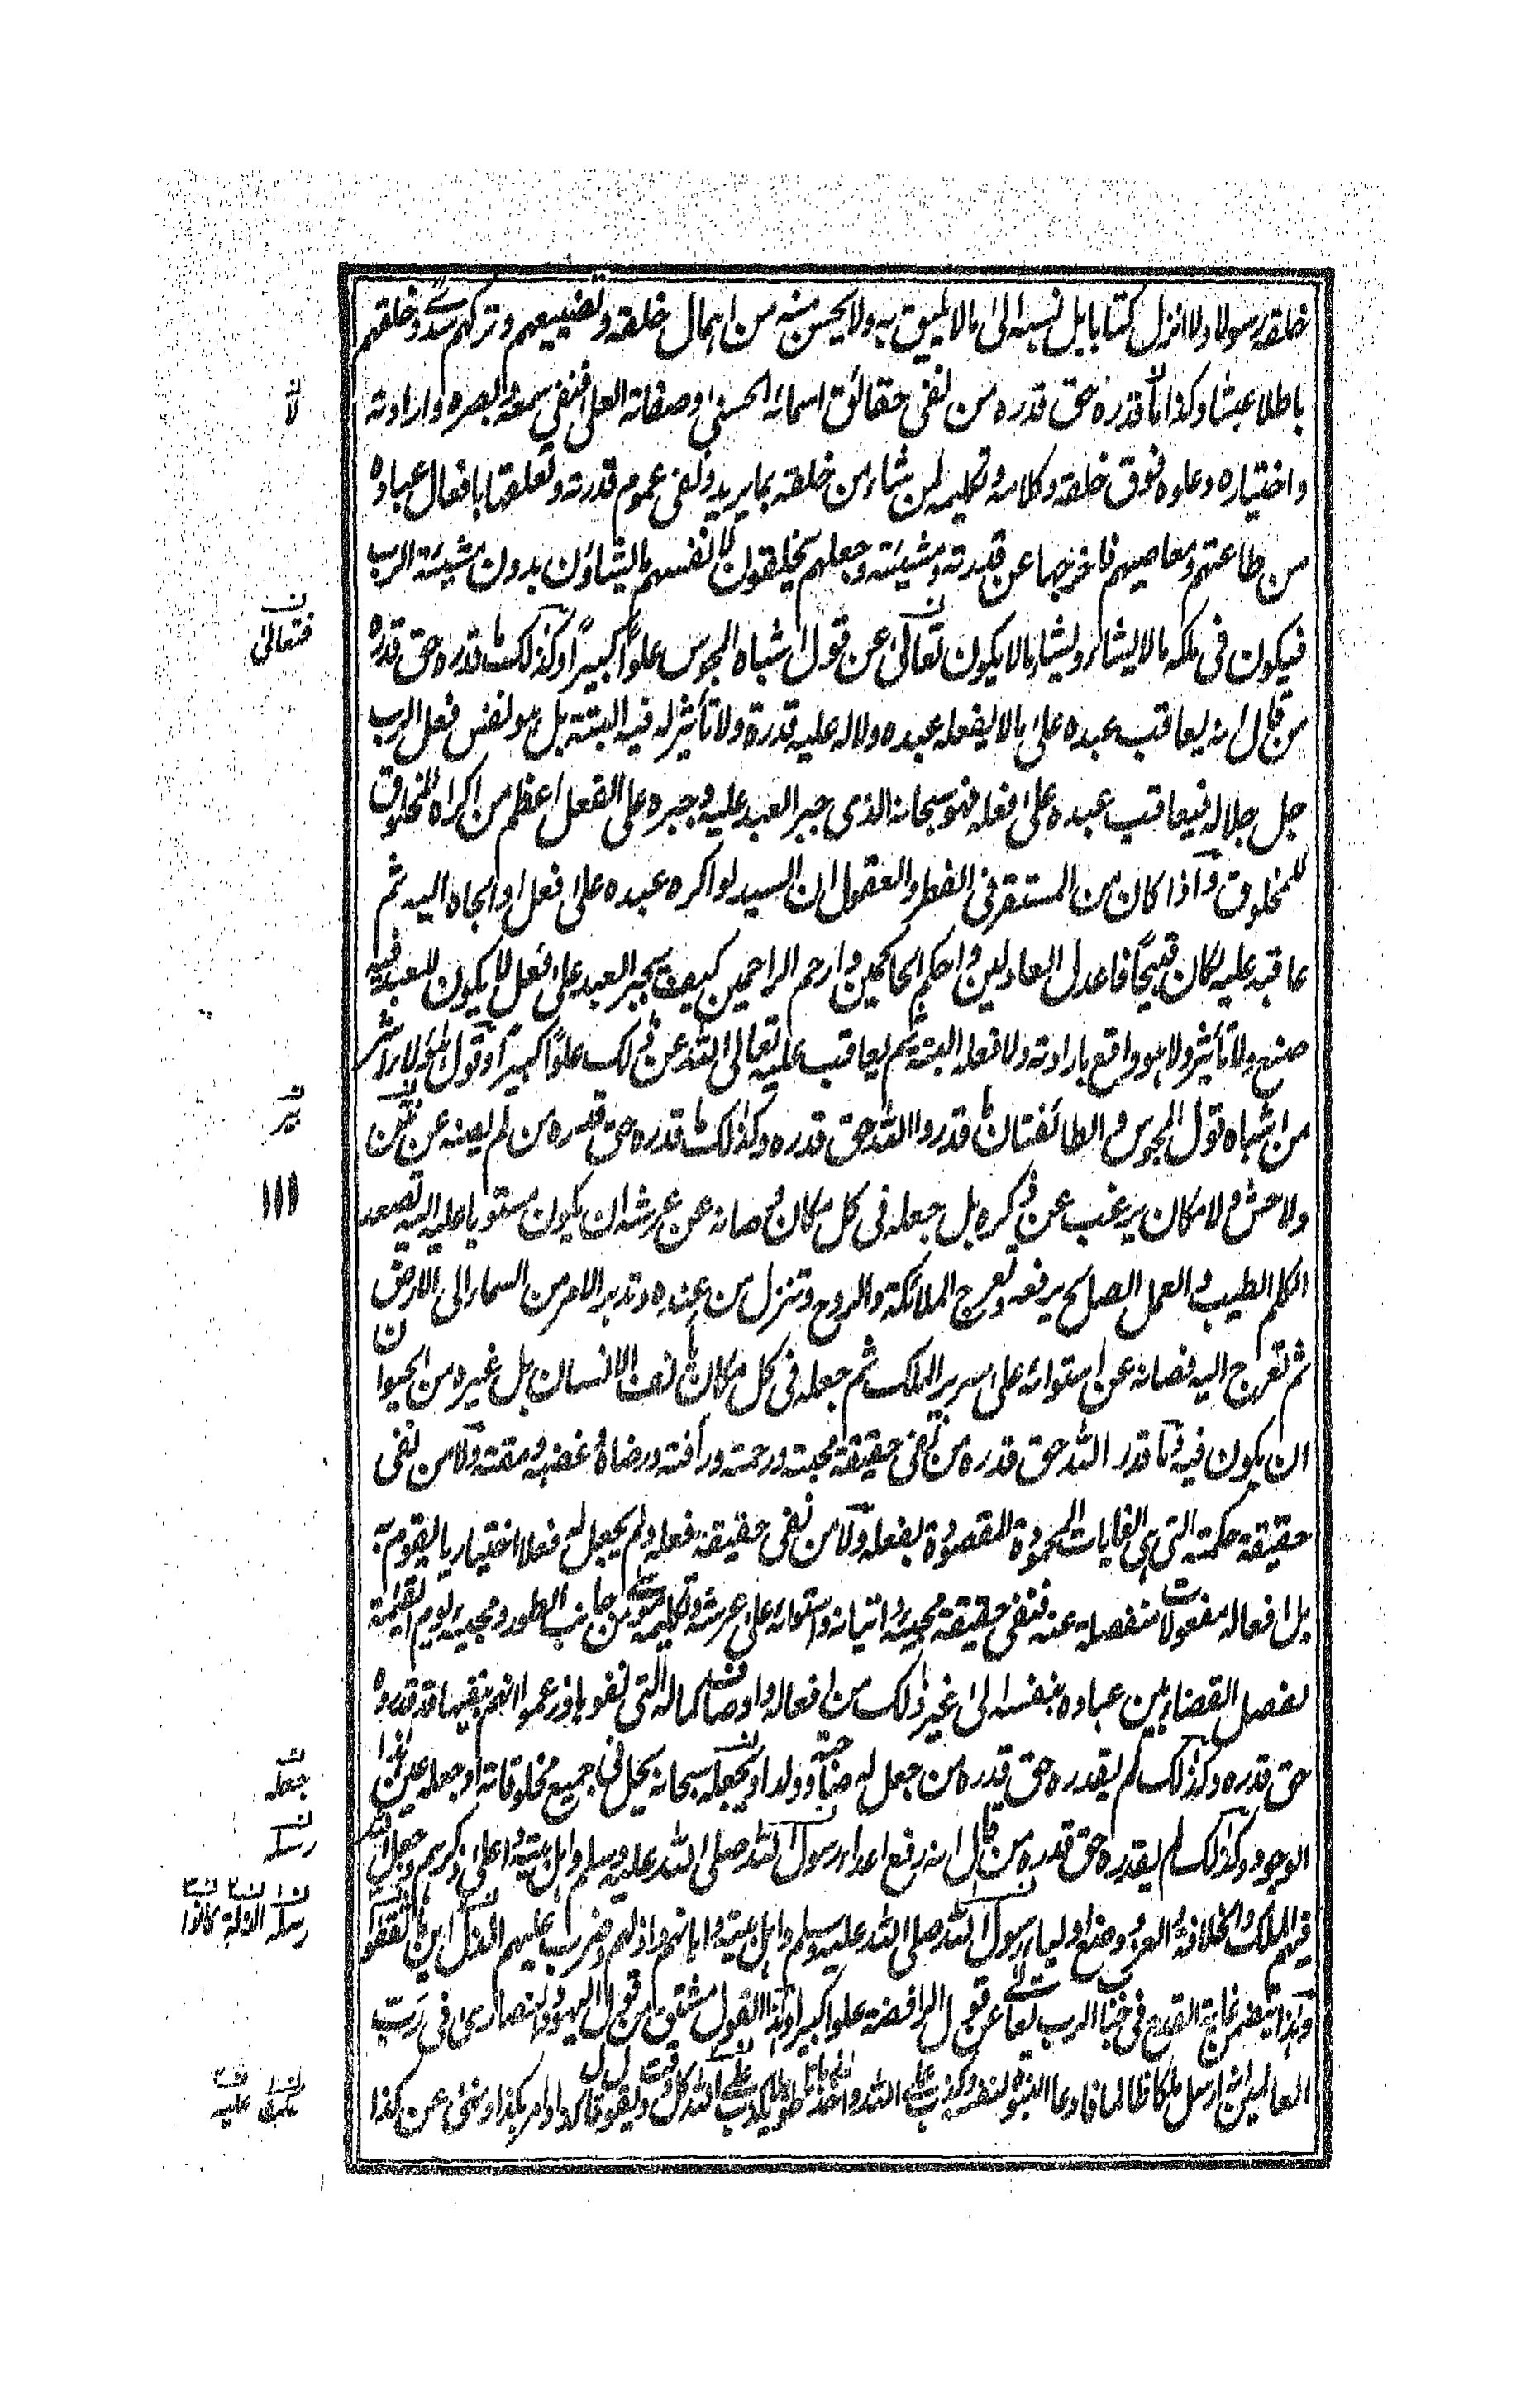 خلقه رسولا ولا انزل كتابا بل نسبه الى ما لا يليق به ولا يحسن منه من اهمال خلقه وتضييعهم وتركهم سدى وخلقهم
باطلا عبثا وكذا ما قدره حق قدره من نفى حقائق اسمائه الحسنى وصفاته العلى فنفى سمعه وبصره وارادته
واختياره وعلوه فوق خلقه وكلامه وتكليمه لمن شاء من خلقه بما يريد ونفى عموم قدرته وتعلقها بافعال عباده
من طاعتهم ومعاصيهم فاخرجها عن قدرته ومشيئته وجعلهم يخلقون لانفسهم ما يشاؤن بدون مشيئة الرب
فيكون فى ملكه ما لا يشاء ويشاء ما لا يكون تعالى عن قول اشباه المجوس علوًّا كبيرًا وكذلك ما قدره حق قدره
من قال انه يعاقب عبده على ما لا يفعله عبده ولا له عليه قدرة ولا تأثير له فيه البتة بل هو نفس فعل الرب
جل جلاله فيعاقب عبده على فعله فهو سبحانه الذى جبر العبد عليه وجبره على الفعل اعظم من اكراه المخلوق
للمخلوق واذا كان من المستقر فى الفطر والعقول ان السيد لو اكره عبده على فعل او الجاه اليه ثم
عاقبه عليه لكان قبيحًا فاعدل العادلين واحكم الحاكمين وارحم الراحمين كيف يجبر العبد على فعل لا يكون للعبد فيه
صنع ولا تأثير ولا هو واقع بارادته ولا فعله البتة ثم يعاقب عليه تعالى الله عن ذلك علوًا كبيرًا وقول هؤلاء شر
من اشباه قول المجوس والطائفتان ما قدروا الله حق قدره وكذلك ما قدره حق قدره من لم يصنه عن نتن
ولا حش ولا مكان يرغب عن ذكره بل جعله فى كل مكان وصانه عن عرشه ان يكون مستويا عليه اليه تصعد
الكلم الطيب والعمل الصالح يرفعه وتعرج الملائكة والروح وتنزل من عنده وتدبر الامر من السماء الى الارض
ثم تعرج اليه فصانه عن استوائه على سرير الملك ثم جعله فى كل مكان يأنف الانسان بل غيره من الحيوان
ان يكون فيه وما قدر الله حق قدره من نفى حقيقة محبته ورحمته ورأفته ورضاه وغضبه ومقته ولا من نفى
حقيقة حكمته التى هى الغايات المحمودة المقصودة بفعله ولا من نفى حقيقة فعله ولم يجعل له فعلا اختياريا يقوم به
بل افعاله مفعولات منفصلة عنه فنفى حقيقة مجيئه واتيانه واستوائه على عرشه وتكليمه موسى من جانب الطور ومجيئه يوم القيمة
لفصل القضاء بين عباده بنفسه الى غير ذلك من افعاله واوصاف كماله التى نفوها وزعموا انهم بنفيها قد قدروه
حق قدره وكذلك لم يقدره حق قدره من جعل له صاحبة وولدا او يجعله سبحانه يحل فى جميع مخلوقاته او جعله عين هذا
الوجود وكذلك لم يقدره حق قدره من قال انه رفع اعداء رسول الله صلى الله عليه وسلم واهل بيته واعلى ذكرهم وجعل
فيهم الملك والخلافة والعز ووضع اولياء رسول الله صلى الله عليه وسلم واهل بيته واهانهم واذلهم وضرب عليهم الذل اين ما ثقفوا
وهذا يتضمن غاية القدح فى جناب الرب تعالى عن قول الرافضة علوا كبيرا وهذا القول مشتق من قول اليهود والنصارى فى رَبّ
العالمين انه ارسل ملكا ظالما فادعا النبوة لنفسه وكذب على الله واخذ زمانا طويلا يكذب على الله كل وقت ويقول قال كذا وامر بكذا ونهى عن كذا
لا
فتعالى
جعله
رسله
رسله الذلة كانوا
يكذب عليه